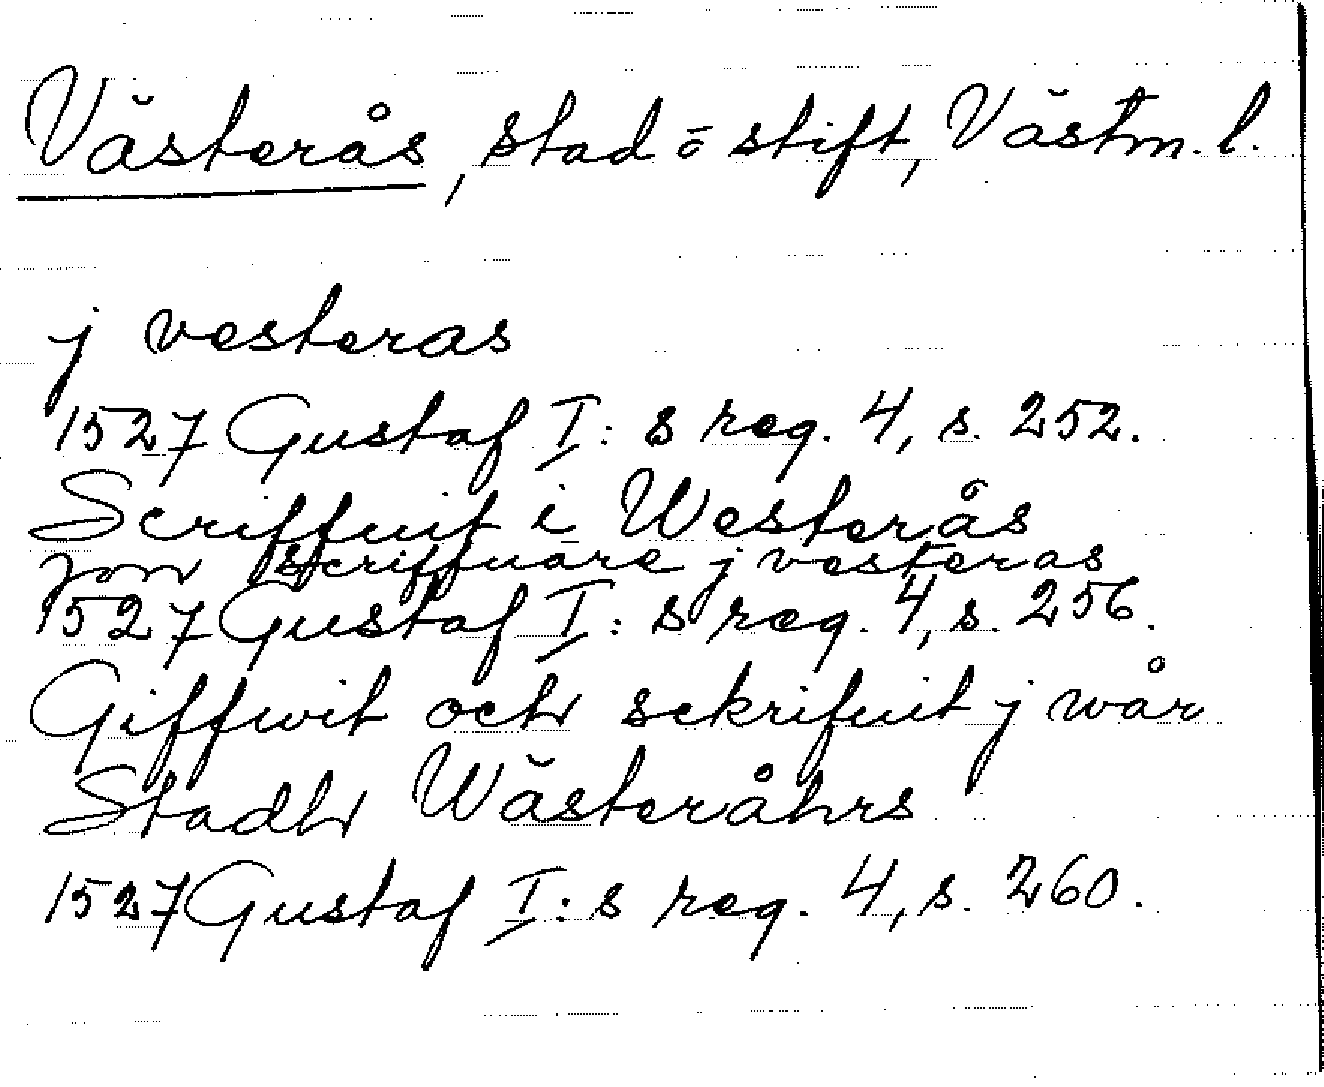 Västerås, stad o stift, Västm. l.
j vesteras
1527 Gustaf I:s reg. 4, s. 252.
Scriffuit i Westerås
Jon scriffuare j vesteras
1527 Gustaf I:s reg. 4, s. 256.
Giffwit och sckrifuit j wår
Stadh Wästeråhrs
1527 Gustaf I:s reg. 4, s. 260.